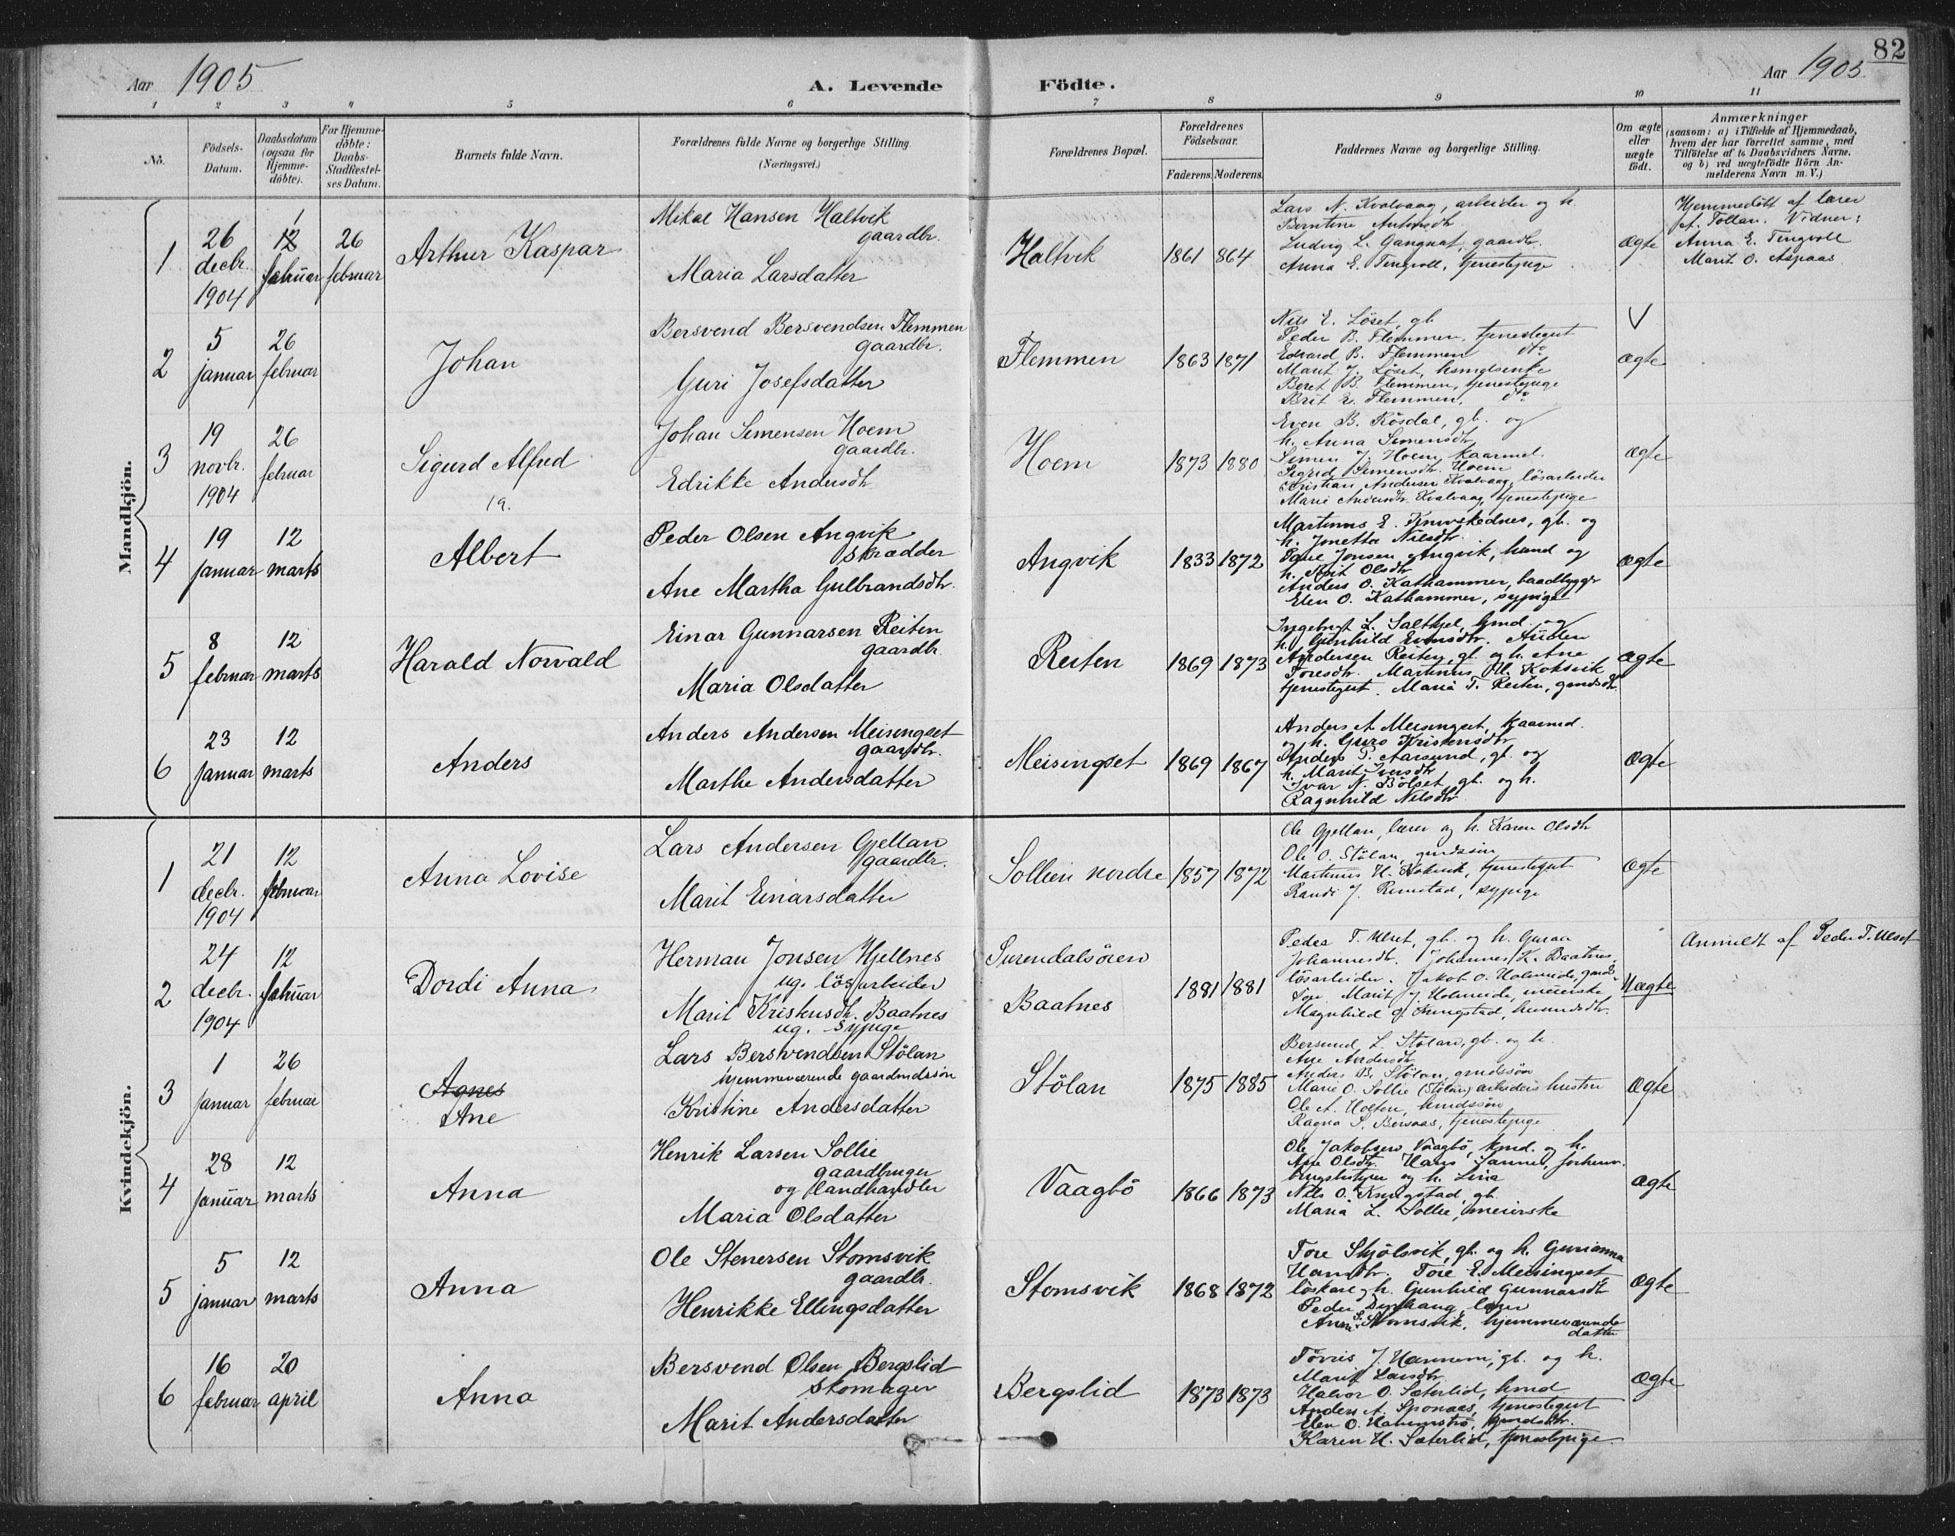 82
Aar 1905
A. Levende Födte.
Aar 1905
1 2 3 4 5 6 7 8 9 10 11
No.
Födsels-Datum.
Daabsdatum (ogsaa for Hjemme-döbte).
For Hjemme-döbte: Daabs-Stadfæstel-ses Datum.
Barnets fulde Navn.
Forældrenes fulde Navne og borgerlige Stilling (Næringsvei.)
Forældrenes Bopæl.
Forældrenes Födselsaar.
Faderens. Moderens.
Faddernes Navne og borgerlige Stilling.
Om ægte eller uægte födt.
Anmærkninger
(saasom: a) i Tilfælde af Hjemmedaab,
hvem der har forrettet samme, med
Tilföielse af to Daabsvidners Navne,
og b) ved uægtefödte Börn An-
melderens Navn m. V.)
Mandkjön.
1
26 decbr. 1904
12 februar
26 februar
Arthur Kaspar
Mikal Hansen Haltvik
gaardbr.
Maria Larsdatter
Haltvik
1861 864
Lars N. Kvalvaag, arbeider og h.
Berntine Antonsdtr
Ludvig L. Gangnat, gaardbr.
Anna E. Tingvoll, tjenestepige
ægte
Hjemmedöbt af lærer
A. Tollan. Vidner:
Anna E. Tingvoll
Marit O. Aspaas
2
5 januar
26 februar
Johan
Bersvend Bersvendsen Flemmen
gaardbr.
Guri Josefsdatter
Flemmen
1863 1871
Nils E. Löset, gb.
Peder B. Flemmen, tjenestegut
Edvard B. Flemmen dto
Marit J. Löset, husmdsenke
Beret B. Flemmen, tjenestepige
Brit E. Flemmen, dto
ægte
3
19 novbr. 1904
26 februar
Sigurd Alfred
Johan Simensen Hoem
gaardbr.
Edrikke Andersdtr
Hoem
1873 1880
Even B. Rösdal, gb. og
h. Anna Simensdtr
Simen J. Hoem, kaarmd.
Sigrid Simensdtr. Hoem
Kristian Andersen Kvalvaag, lösarbeider
Marie Andersdtr. Kvalvaag, tjenestepige
ægte
4
19 januar
12 marts
Albert
Peder Olsen Angvik
skrædder
Ane Martha Gulbrandsdtr.
Angvik
1833 1872
h. Jonetta Nilsdtr
Anders O. Kathammer, baadbygger
Elen O. Kathammer, sypige
ægte
5
8 februar
12 marts
Harald Norvald
Einar Gunnarsen Reiten
gaardbr.
Maria Olsdatter
Reiten
1869 1873
h. Gunhild Evensdtr. Audun
Andersen Reiten, gb. og h. Ane
Toresdtr. Martinus H. Koksvik
tjenestegut. Maria T. Reiten, gmdsdtr.
ægte
6
23 januar
12 marts
Anders
Anders Andersen Meisingset
gaardbr.
Marthe Andersdatter
Meisingset
1869 1867
Anders A. Meisingset, kaarmd.
og h. Guro Kristensdtr
Anders P. Aarsund, gb. og
h. Marit Iversdtr
Ivar N. Bölset, gb. og h.
Ragnhild Nilsdtr
ægte
Kvindekjön.
1
21 decbr. 1904
12 februar
Anna Lovise
Lars Andersen Gjellan
gaardbr.
Marit Einarsdatter
Sollien nordre
1857 1872
Ole Gjellan, lærer og h. Karen Olsdtr
Ole O. Stölan, gmdssön
Martinus H. Koksvik, tjenestegut
Randi J. Rimstad, sypige
ægte
2
24 decbr. 1904
12 februar
Dordi Anna
Herman Jonsen Hjellnes
ug. lösarbeider
Marit Kristensdtr. Baatnes
ug. sypige
Surendalsören
Baatnes
1881 1881
Peder T. Ulset, gb. og h. Guroa
Johannesdtr. Johannes K. Baatnes
lösarbeider. Jakob O. Holmeide, gmds-
sön. Marit J. Holmeide, meierske
Uægte
Anmeldt af Peder T. Ulset
3
1 januar
26 februar
Agnes
Ane
Lars Bersvendsen Stölan
hjemmeværende gaardmdssön
Kristine Andersdatter
Stölan
1875 1885
Bersvend L. Stölan, gb. og h.
Ane Andersdtr
Anders B. Stölan, gmdssön
Marie O. Sollie (Stölan) arbeiders hustru
Ole A. Holten, husmdssön
Ragna S. Bersaas, tjenestepige
ægte
4
28 januar
12 marts
Anna
Henrik Larsen Sollie
gaardbruger
og Landhandler
Maria Olsdatter
Vaagbö
1866 1873
Ole Jakobsen Vaagbö, kmd. og h.
Ane Olsdtr. Hans Sannes, forhenv.
Nils O. Kningstad, gb.
Maria L. Sollie, meierske
ægte
5
5 januar
12 marts
Anna
Ole Stenersen Stomsvik
gaardbr.
Henrikke Ellingsdatter
Stomsvik
1868 1872
Tore Skjölsvik, gb. og h. Gurianna
Hansdtr. Tore E. Meisingset
löskar og h. Gunhild Gunnarsdtr
Peder Dyrhaug, lærer
Anne S. Stomsvik, hjemmeværende
datter
ægte
6
16 februar
20 april
Anna
Bersvend Olsen Bergslid
skomager
Marit Andersdatter
Bergslid
1873 1873
gb. og h.
Marit Larsdtr
Halvor O. Sæterlid, kmd
Anders A. Sponaas, tjenestegut
Karen H. Sæterlid, tjenestepige
ægte